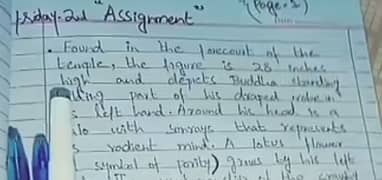 Friday-2nd "Assignment" (Page-1)
• Found in the forecourt of the
temple, the figure is 28 inches
high and depicts Buddha standing
part of his draped robe in
left hand. Around his head is a
with sunrays that represents
radient mind. A lotus flower
symbol of purity) grows by his left
of the